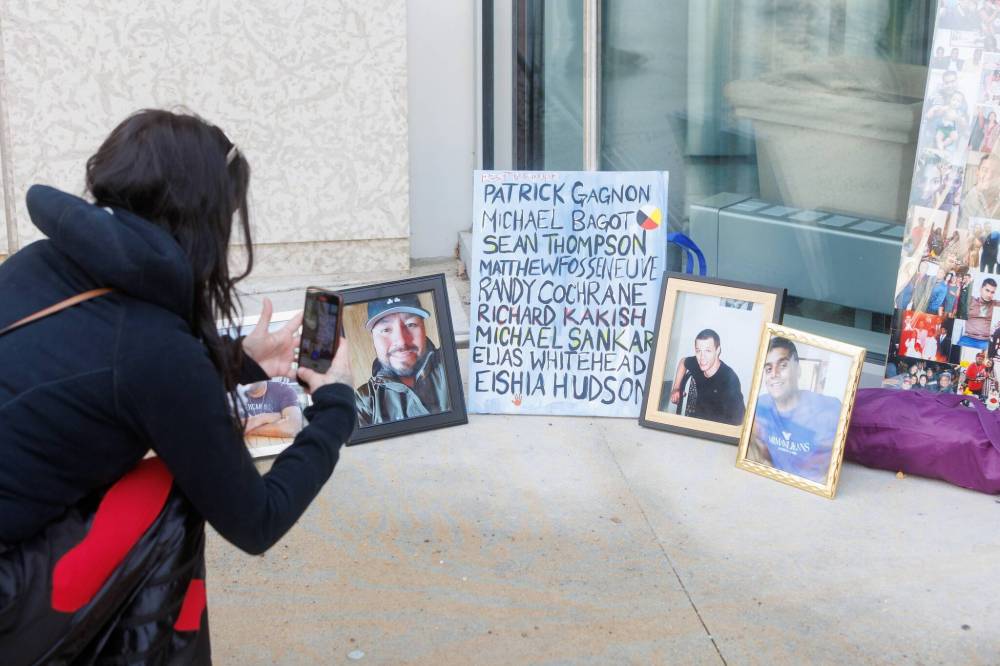 PATRICK GAGNON
MICHAEL BAGOT
SEAN THOMPSON
MATTHEW FOSSENEUVE
RANDY COCHRANE
RICHARD KAKISH
MICHAEL SANKAR
ELIAS WHITEHEAD
EISHIA HUDSON